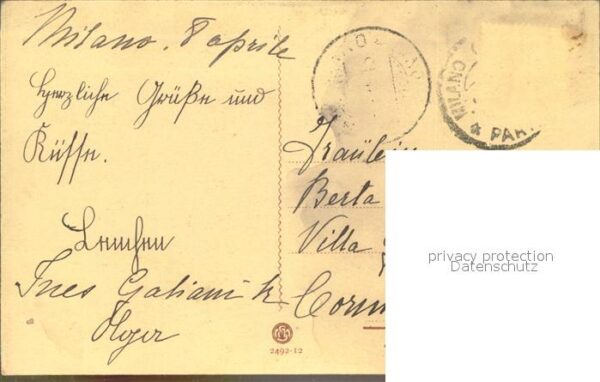 Milano. 8 aprile
Herzliche Grüße und
Küsse.
Lenchen
Ines Galiani
Olger
Fräulein
Berta
Villa
Corm
MILANO
* PAR
2492-12
privacy protection
Datenschutz